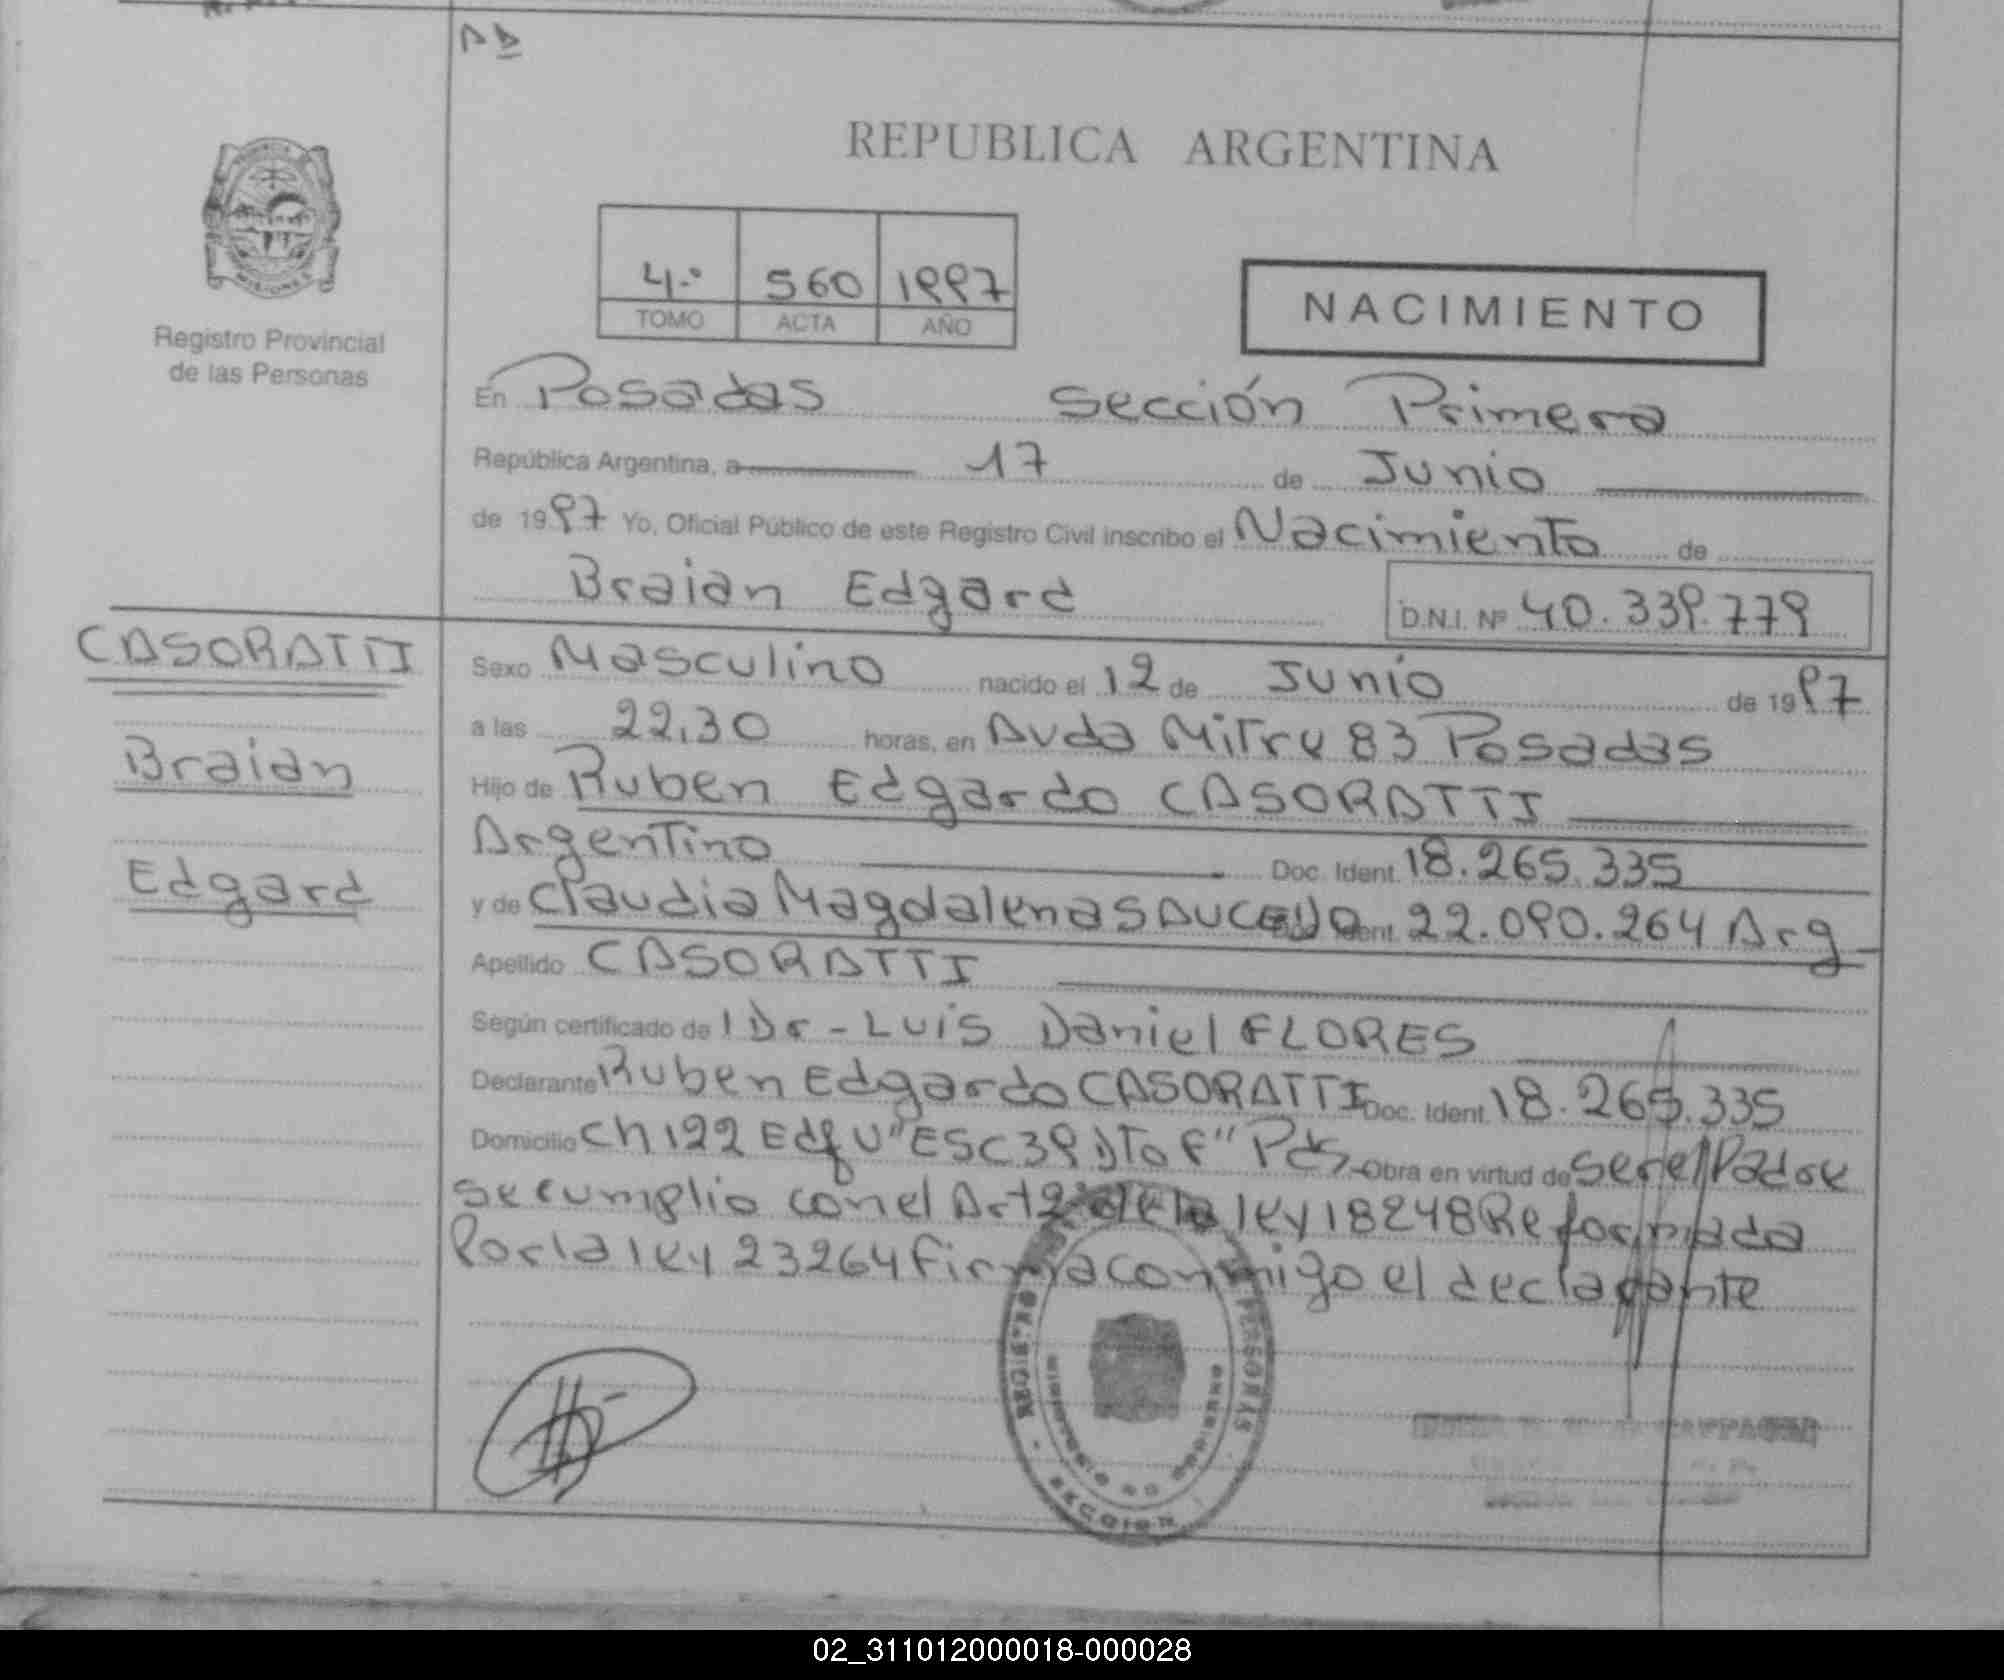 REPUBLICA ARGENTINA
Registro Provincial
de las Personas
4.º 560 1997
TOMO ACTA AÑO
NACIMIENTO
En Posadas Sección Primera
República Argentina, a 17 de Junio
de 1997 Yo, Oficial Público de este Registro Civil inscribo el Nacimiento de
Braian Edgard D.N.I. Nº 40.339.779
CASORATTI
Braian
Edgard
Sexo Masculino nacido el 12 de Junio de 1997
a las 22,30 horas, en Avda Mitre 83 Posadas
Hijo de Ruben Edgardo CASORATTI
Argentino Doc. Ident. 18.265.335
y de Claudia Magdalena SAUCEDO Ident. 22.090.264 Arg
Apellido CASORATTI
Según certificado del Dr - Luis Daniel FLORES
Declarante Ruben Edgardo CASORATTI Doc. Ident. 18.265.335
Domicilio Ch 122 Edf U" ESC 39 DTo F" Pds Obra en virtud de ser el Padre
se cumplio con el Art 2º de la ley 18248 Reformada
Por la ley 23264 firma conmigo el declarante
PERSONAS
SECCION
02_311012000018-000028